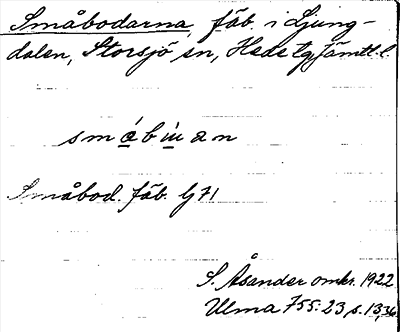 Småbodarna, fäb. i Ljung-
dalen, Storsjö sn, Hede tg, Jämtl. l.
Småbod. fäb. Gj 71
S. Åsander omkr. 1922
Ulma 755:23, s. 13, 36